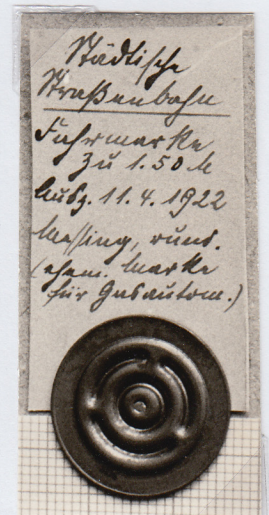 Städtische
Straßenbahn
Fahrmarke
zu 1.50 M
Ausg. 11.4.1922
Messing, rund.
(ehem. Marke
für Gasautom.)